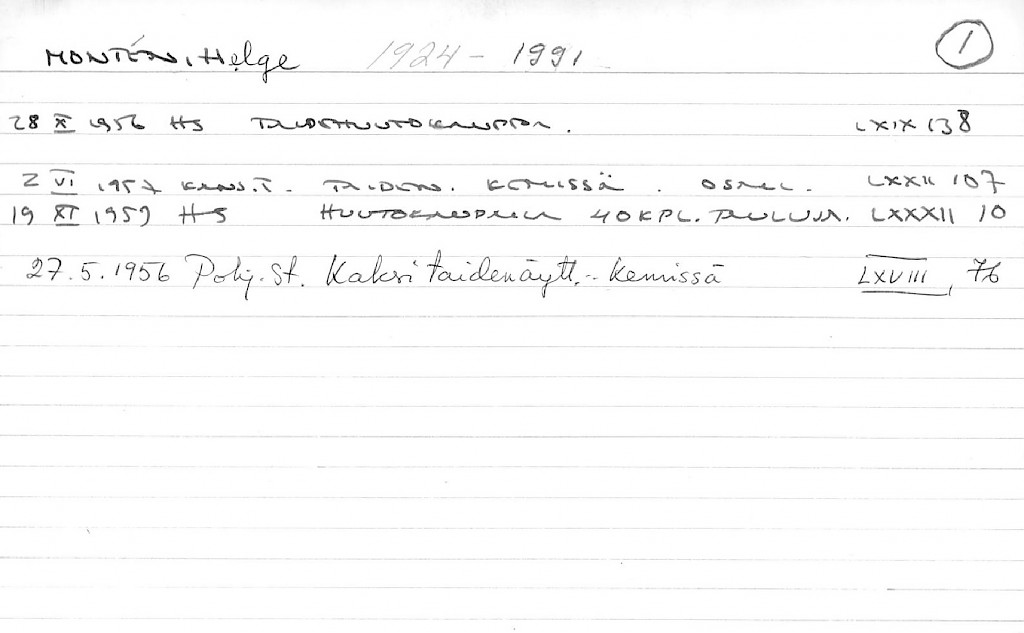 MONTÉN, Helge 1924 - 1991 1
28 X 1956 HS TAIDEHUUTOKAUPPA. LXIX 138
2 VI 1957 KANS.T. TAIDEN. KEMISSÄ. OSALL. LXXII 107
19 XI 1959 HS HUUTOKAUPALLA 40 KPL. TAULUJA. LXXXII 10
27.5.1956 Pohj.St. Kaksi taidenäytt. - Kemissä LXVIII, 76